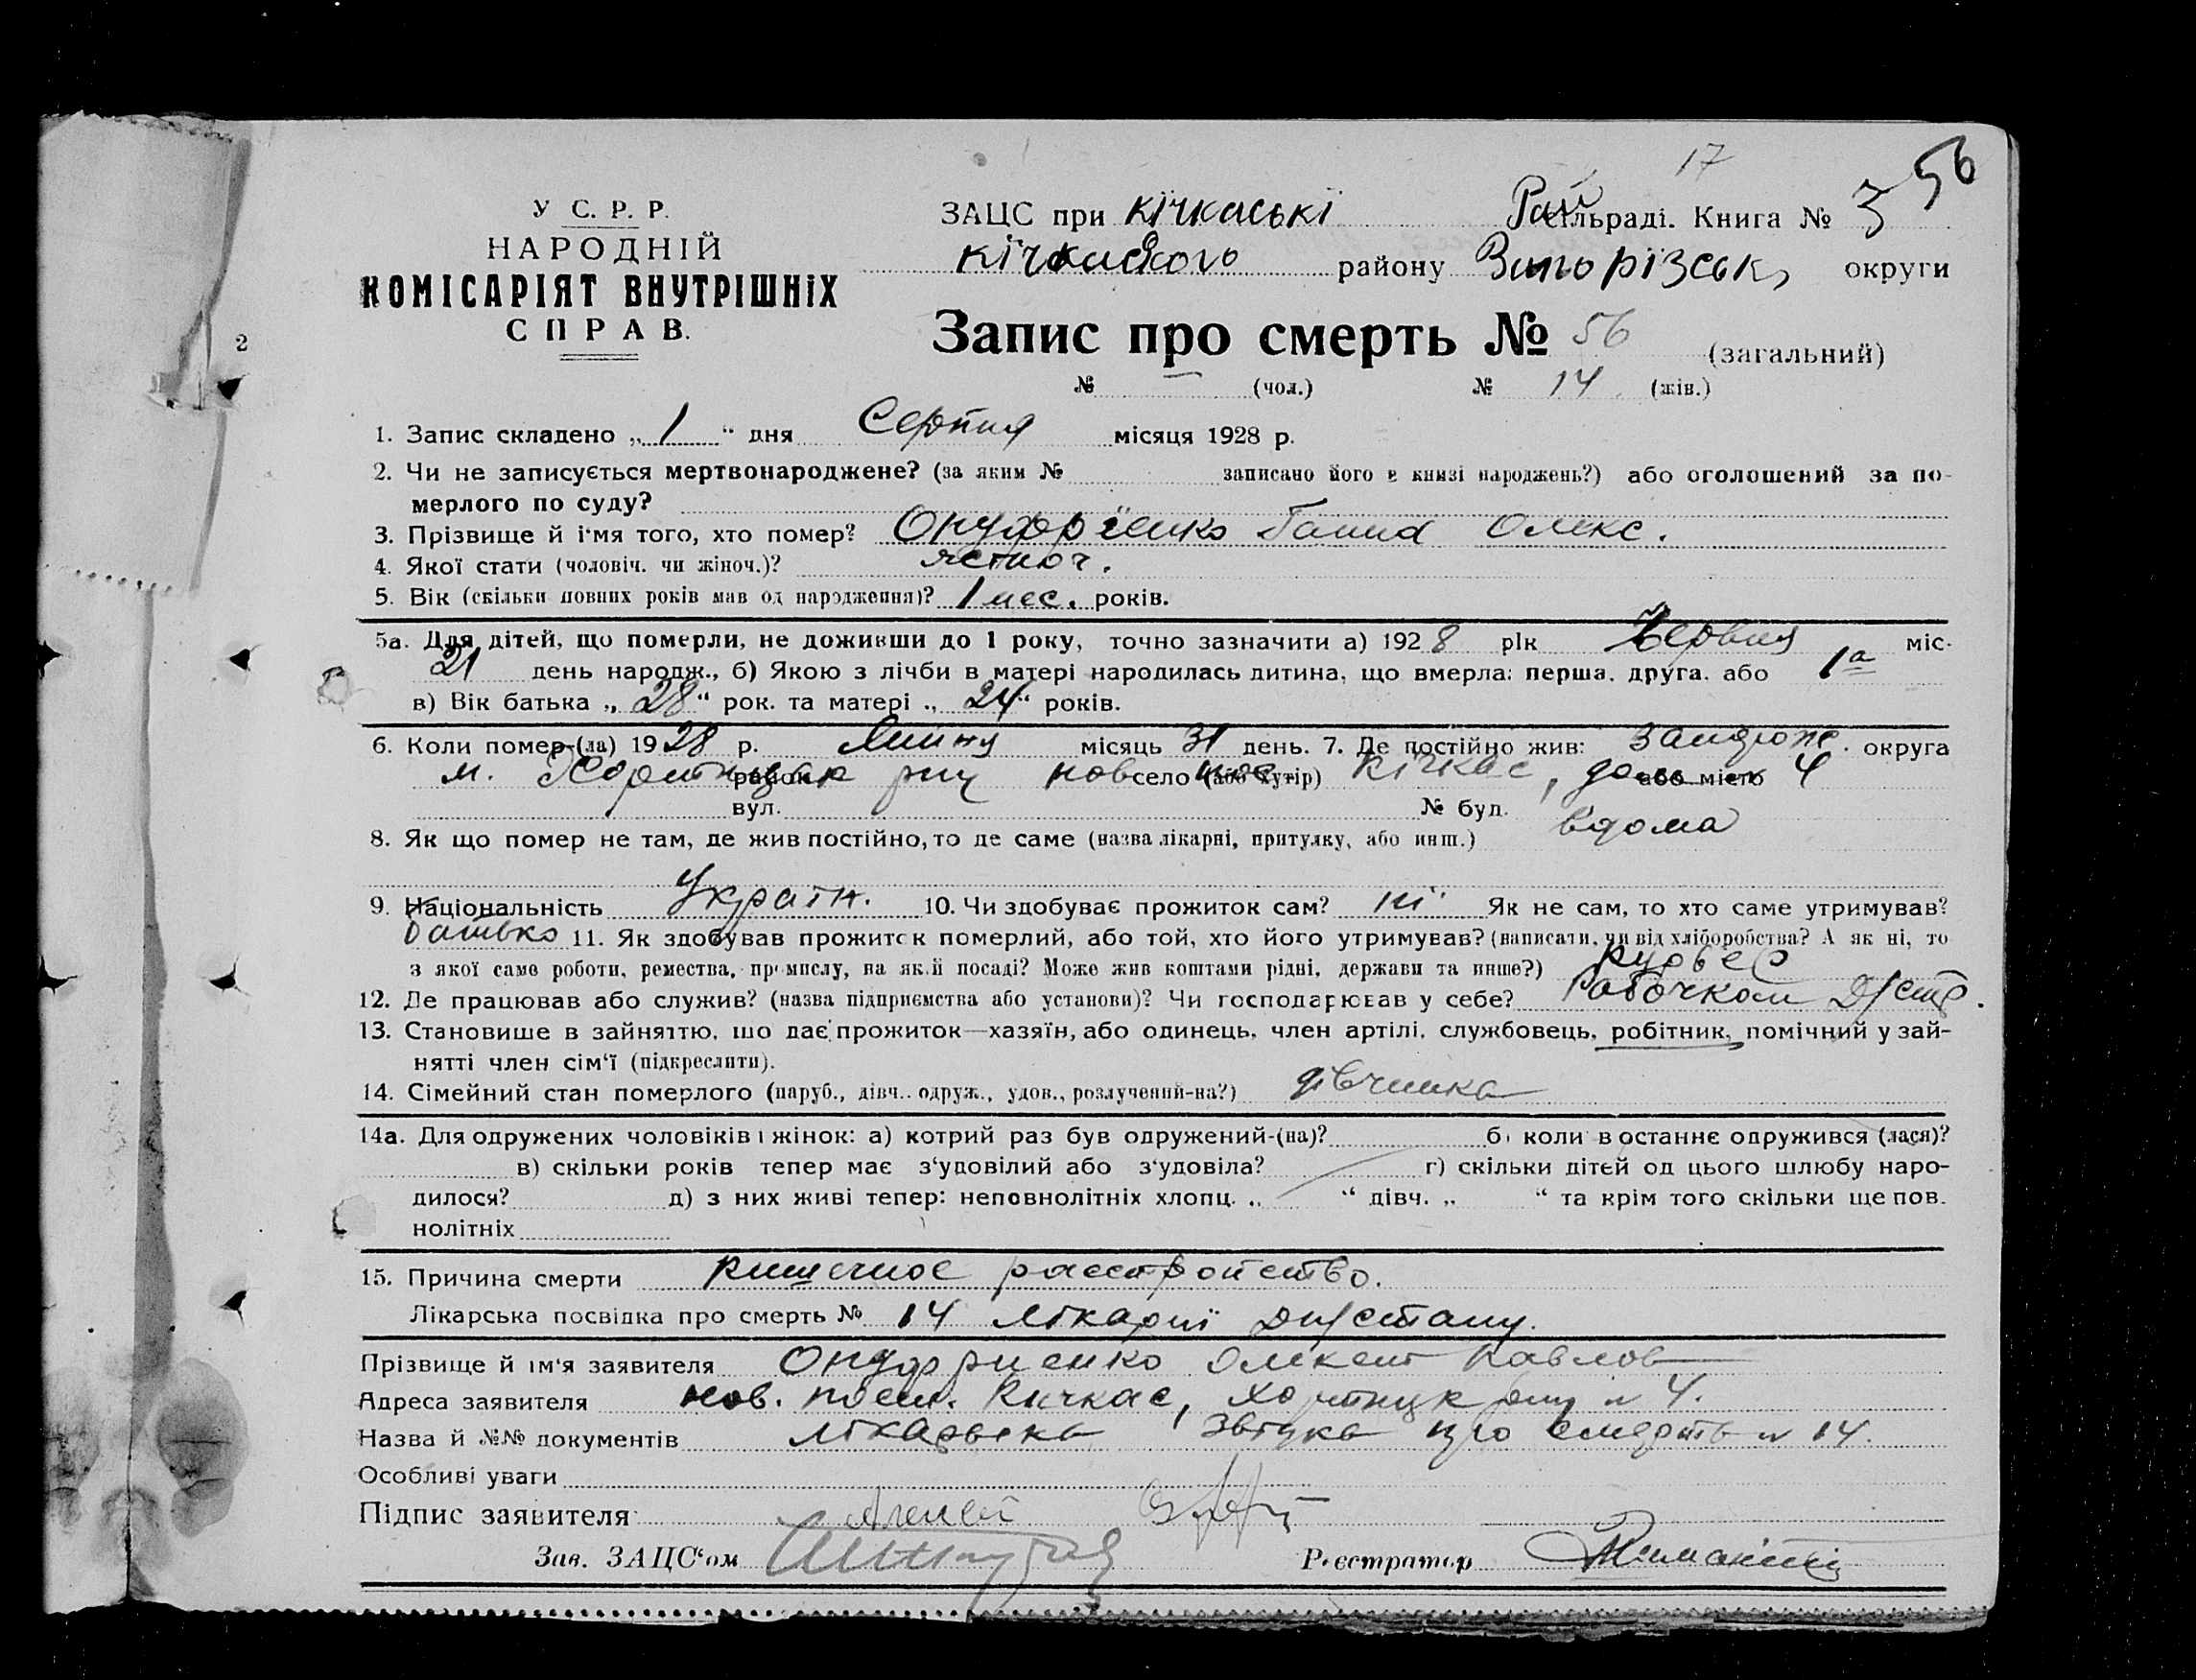 17
56
У С. Р. Р.
НАРОДНІЙ
КОМІСАРІЯТ ВНУТРІШНІХ
СПРАВ.
2
ЗАЦС при Кічкаські Рай сільраді. Книга № 3
Кічкаського району Запорізськ, округи
Запис про смерть № 56 (загальний)
№ — (чол.) № 14 (жін.)
1. Запис складено „ 1 “ дня Серпня місяця 1928 р.
2. Чи не записується мертвонароджене? (за яким № записано його в книзі народжень?) або оголошений за по-
мерлого по суду?
3. Прізвище й ім‘я того, хто помер? Онуфріенко Ганна Олекс.
4. Якої стати (чоловіч. чи жіноч.)? жіноч.
5. Вік (скільки повних років мав од народження)? 1 мес. років.
5а. Для дітей, що померли, не доживши до 1 року, точно зазначити а) 1928 рік Червня міс.
21 день народж., б) Якою з лічби в матері народилась дитина, що вмерла: перша, друга, або 1а
в) Вік батька „ 28 “ рок. та матері „ 24 “ років.
6. Коли помер-(ла) 1928 р. Липня місяць 31 день. 7. Де постійно жив: Запоріж. округа
м. район нов село (або хутір) Кічкас, або місто 4
вул. № буд.
8. Як що помер не там, де жив постійно, то де саме (назва лікарні, притулку, або инш.) вдома
9. Національність Україн. 10. Чи здобуває прожиток сам? ні Як не сам, то хто саме утримував?
батько 11. Як здобував прожиток померлий, або той, хто його утримував? (написати, чи від хліборобства? А як ні, то
з якої саме роботи, ремества, промислу, на якій посаді? Може жив коштами рідні, держави та инше?)
12. Де працював або служив? (назва підприємства або установи)? Чи господарював у себе? Рабочком
13. Становище в зайняттю, що дає прожиток—хазяїн, або одинець, член артілі, службовець, робітник, помічний у зай-
нятті член сім‘ї (підкреслити).
14. Сімейний стан померлого (паруб., дівч., одруж., удов., розлучений-на?) дівчинка
14а. Для одружених чоловіків і жінок: а) котрий раз був одружений-(на)? б) коли в останнє одружився (лася)?
в) скільки років тепер має з‘удовілий або з‘удовіла? г) скільки дітей од цього шлюбу наро-
дилося? д) з них живі тепер: неповнолітніх хлопц. „ “ дівч. „ “ та крім того скільки ще пов.
нолітніх
15. Причина смерти кишечное расстройство.
Лікарська посвідка про смерть № 14 лікарні
Прізвище й ім‘я заявителя Онуфриенко Олексій Павлов
Адреса заявителя нов. посел. Кичкас, № 4.
Назва й №№ документів лікарська звідка про смерть № 14.
Особливі уваги
Підпис заявителя Алексей
Зав. ЗАЦС‘ом
Реєстратор